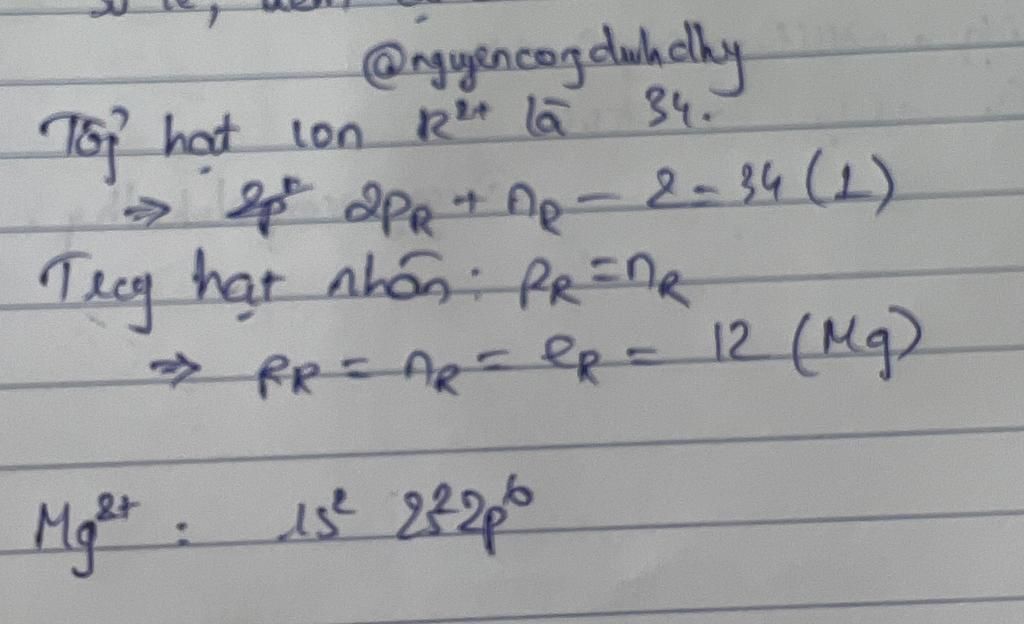 @nguyencongduhdhy
Tổng hạt ion R²⁺ là 34.
⇒ 2pR + nR − 2 = 34 (1)
Trong hạt nhân: pR = nR
⇒ pR = nR = eR = 12 (Mg)
Mg²⁺ : 1s² 2s² 2p⁶